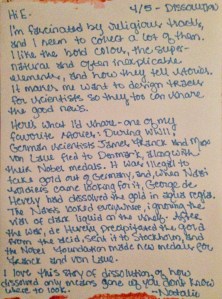 Hi E. 4/5 - DISSOLUTION
I'm fascinated by religious tracts,
and I seem to collect a lot of them.
I like the bold colour, the super-
natural and often inexplicable
elements, and how they tell stories.
It makes me want to design tracts
for scientists so they too can share
the good news.
Here's what I'd share - one of my
favorite stories: During WWII
German scientists James Franck and Max
von Laue fled to Denmark, along with
their Nobel medals. It was illegal to
take gold out of Germany, and, when Nazi
soldiers came looking for it, George de
Hevesy had dissolved the gold in aqua regia.
The Nazis looked everywhere, ignoring the
vial of black liquid on the shelf. After
the war, de Hevesy precipitated the gold
from the acid, sent it to Stockholm, and
the Nobel Foundation made new medals for
Franck and von Laue.
I love this story of dissolution, of how
dissolved only means gone if you don't know
where to look.
- Natalie